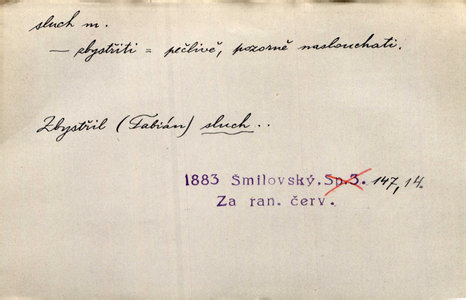 sluch m.
— zbystřiti = pečlivě, pozorně naslouchati.
Zbystřil (Fabián) sluch . .
1883 Šmilovský. Sp.3. 147, 14.
Za ran. červ.